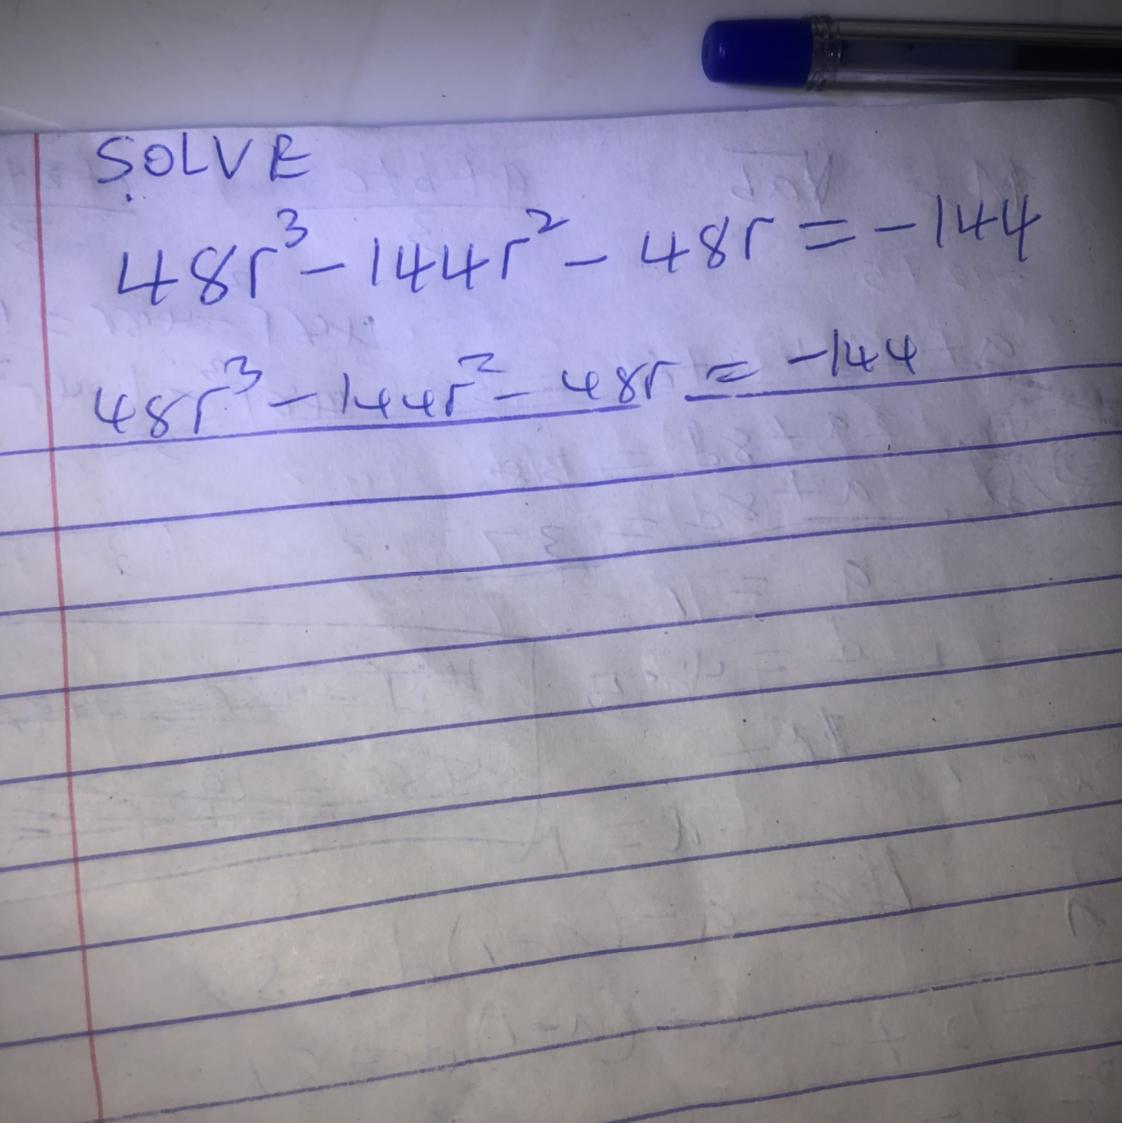 SOLVE
48r³ - 144r² - 48r = -144
48r³ - 144r² - 48r = -144